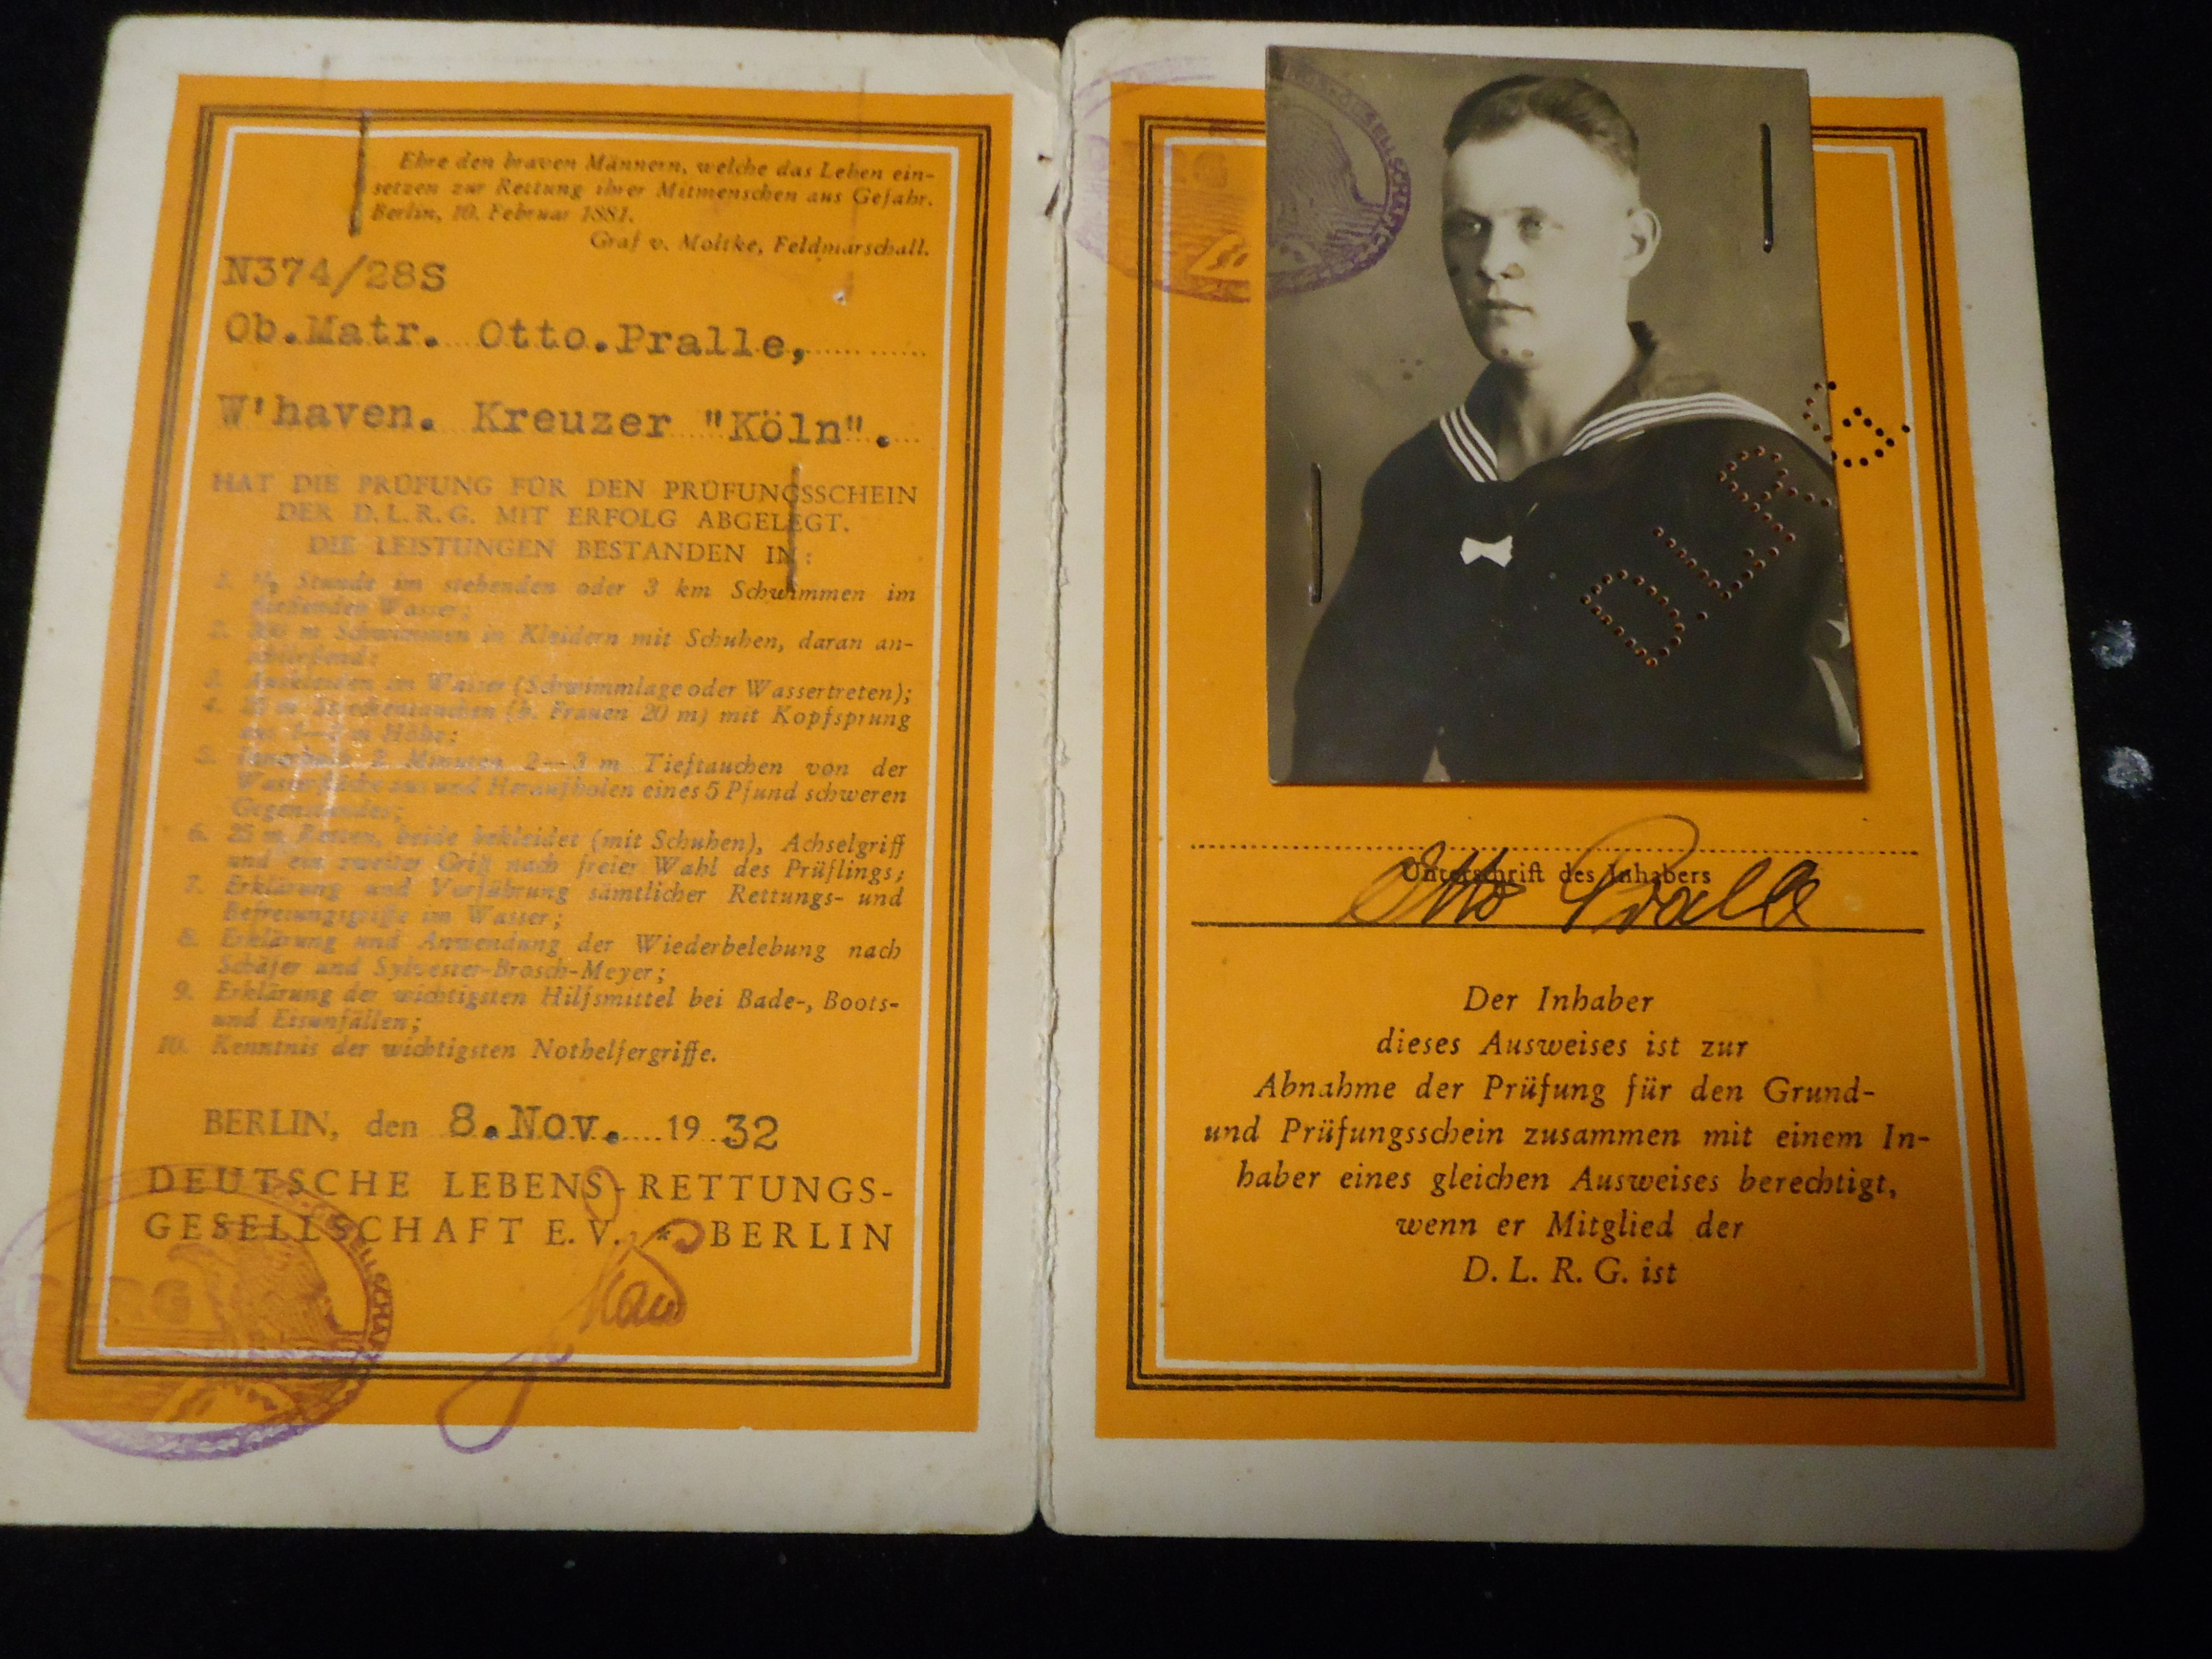 Ehre den braven Männern, welche das Leben ein-
setzen zur Rettung ihrer Mitmenschen aus Gefahr.
Berlin, 10. Februar 1881.
Graf v. Moltke, Feldmarschall.
N374/28S
Ob.Matr. Otto.Pralle,
W'haven. Kreuzer "Köln".
HAT DIE PRÜFUNG FÜR DEN PRÜFUNGSSCHEIN
DER D.L.R.G. MIT ERFOLG ABGELEGT.
DIE LEISTUNGEN BESTANDEN IN:
1. ½ Stunde im stehenden oder 3 km Schwimmen im
fließenden Wasser;
2. 300 m Schwimmen in Kleidern mit Schuhen, daran an-
schließend:
3. Auskleiden im Wasser (Schwimmlage oder Wassertreten);
4. 25 m Streckentauchen (b. Frauen 20 m) mit Kopfsprung
aus 1— m Höhe;
5. Innerhalb 2 Minuten 2—3 m Tieftauchen von der
Wasserfläche aus und Heraufholen eines 5 Pfund schweren
Gegenstandes;
6. 25 m Retten, beide bekleidet (mit Schuhen), Achselgriff
und ein zweiter Griff nach freier Wahl des Prüflings;
7. Erklärung und Vorführung sämtlicher Rettungs- und
Befreiungsgriffe im Wasser;
8. Erklärung und Anwendung der Wiederbelebung nach
Schäfer und Sylvester-Brosch-Meyer;
9. Erklärung der wichtigsten Hilfsmittel bei Bade-, Boots-
und Eisunfällen;
10. Kenntnis der wichtigsten Nothelfergriffe.
BERLIN, den 8.Nov. 19 32
DEUTSCHE LEBENS-RETTUNGS-
GESELLSCHAFT E.V. * BERLIN
DLRG
DLRG
DLRG
Unterschrift des Inhabers
Otto Pralle
Der Inhaber
dieses Ausweises ist zur
Abnahme der Prüfung für den Grund-
und Prüfungsschein zusammen mit einem In-
haber eines gleichen Ausweises berechtigt,
wenn er Mitglied der
D. L. R. G. ist